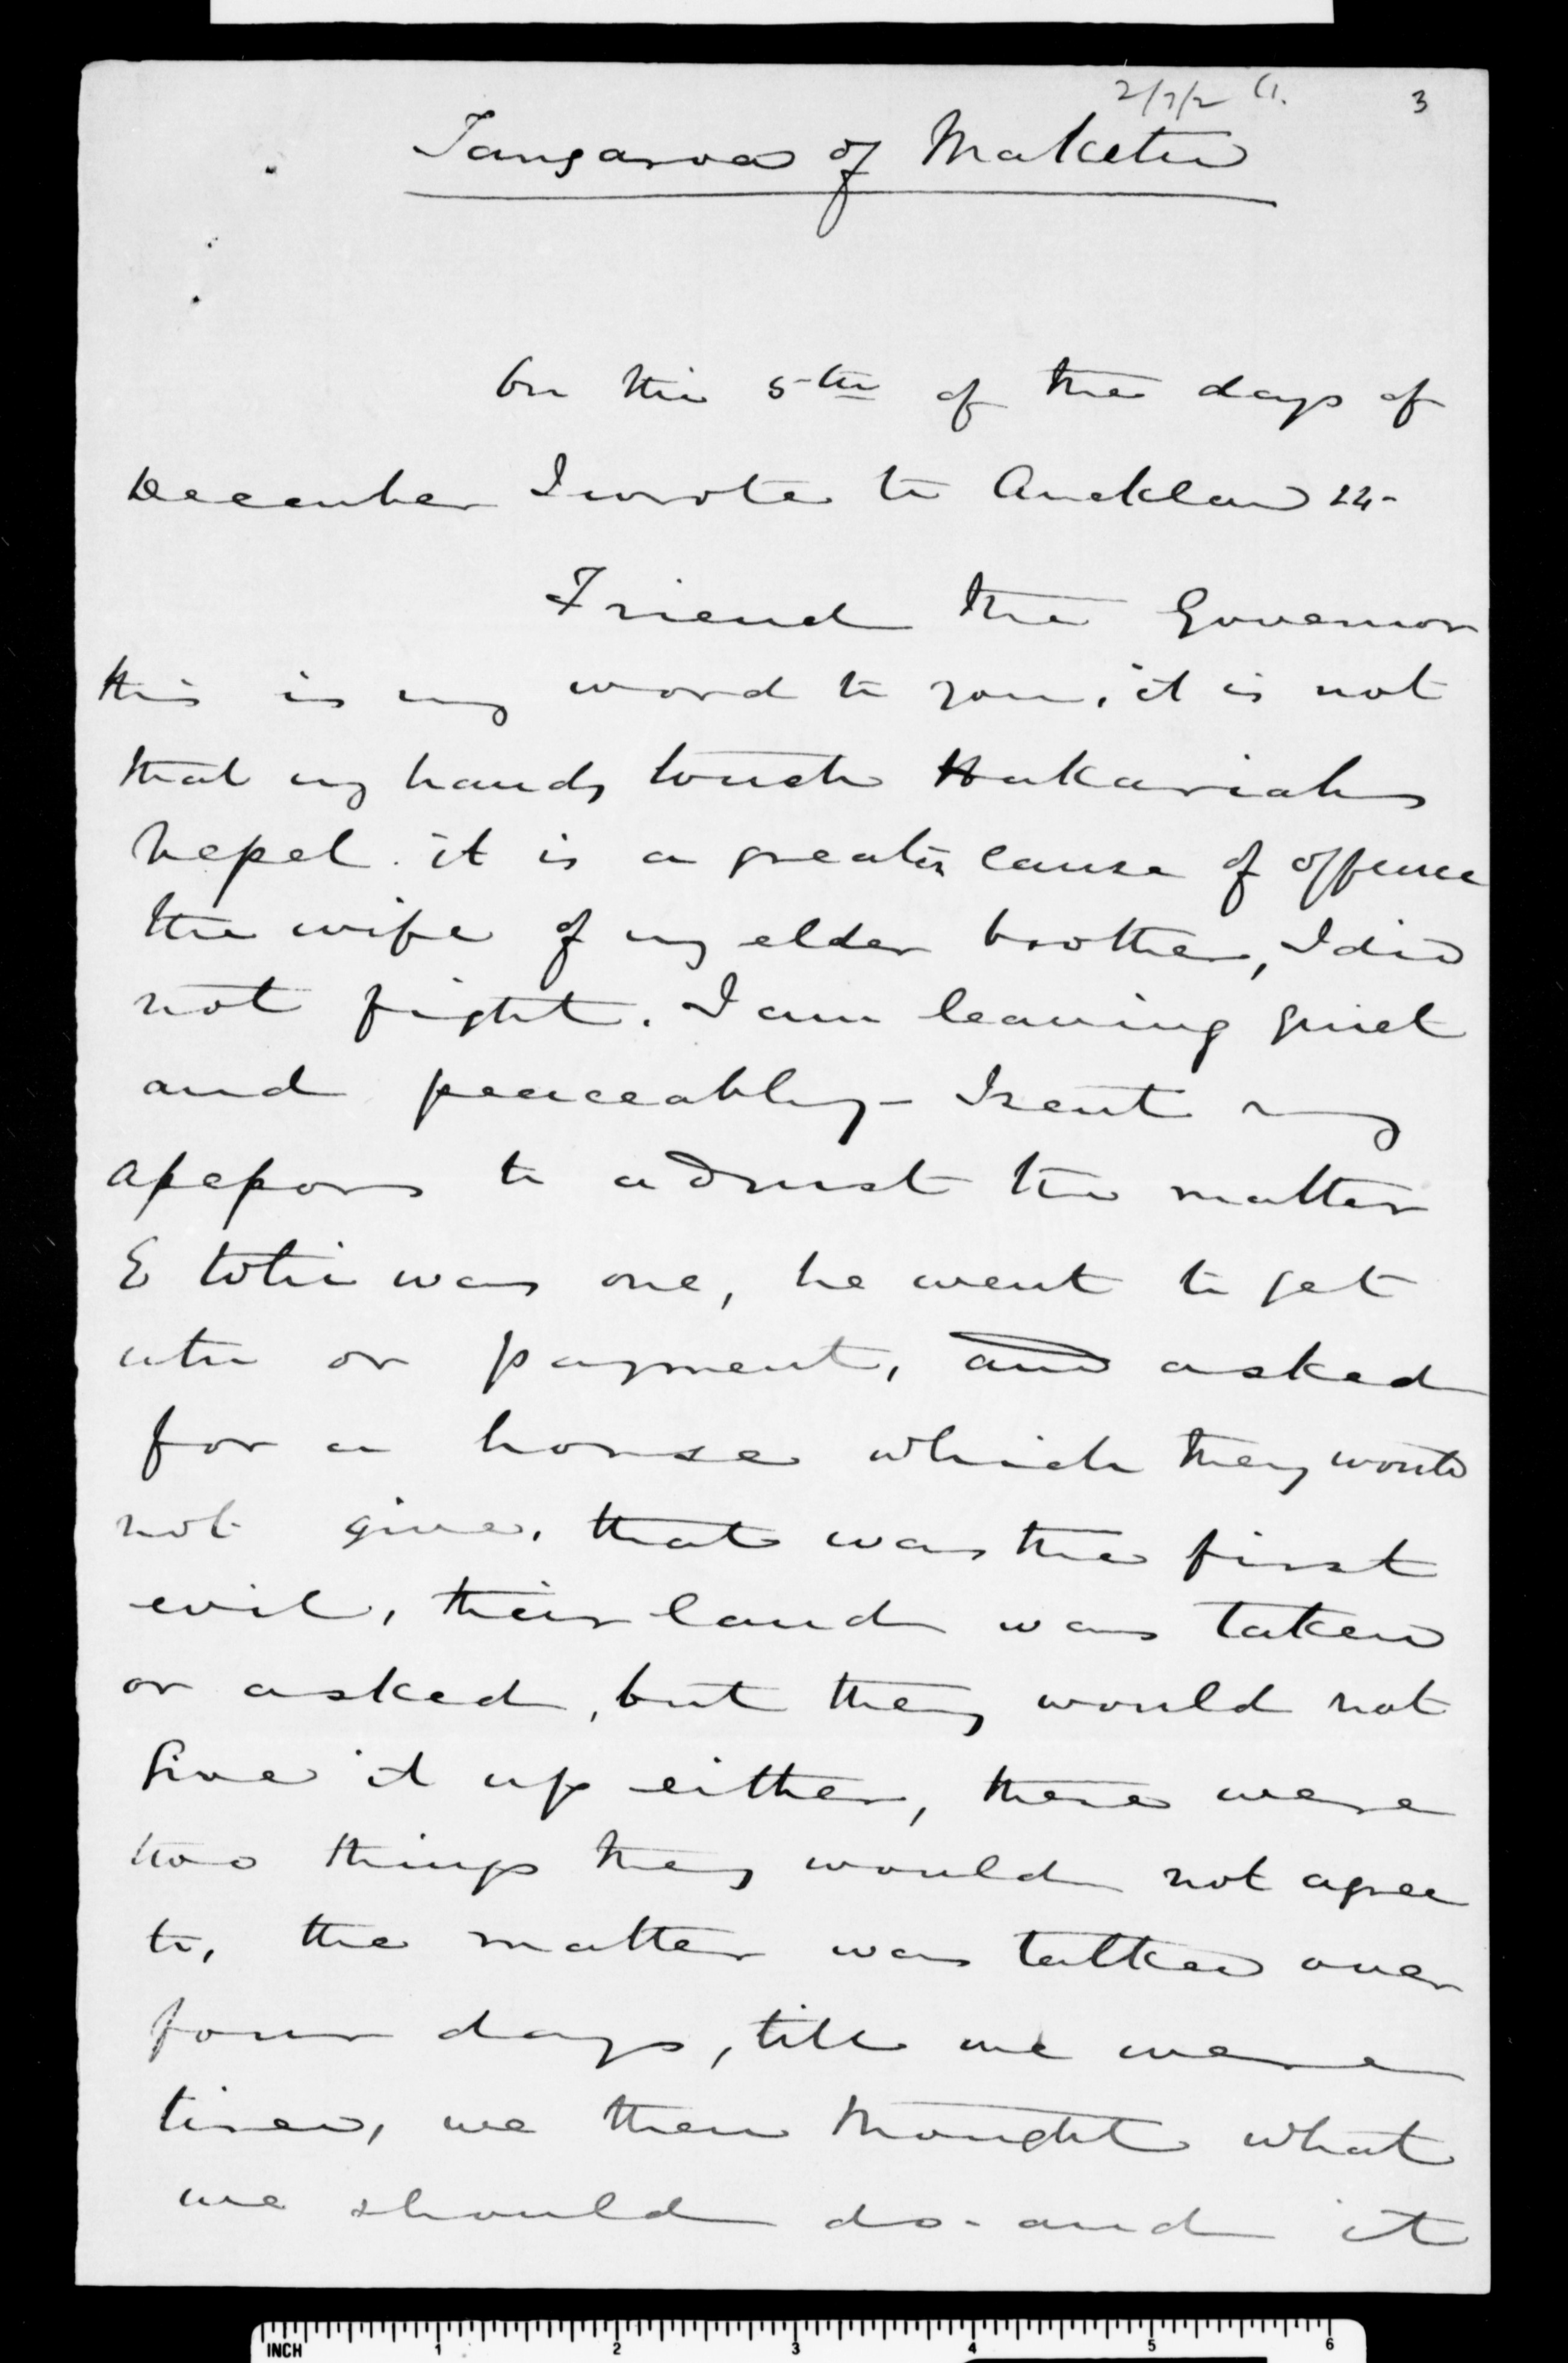 3
Tangaroa of Maketu
On the 5th of the days of
December I wrote to Auckland 24-
Friend the Governor
this is my word to you, it is not
that my hands touch
it is a greater cause of offence
the wife of my elder brother, I did
not fight. I am leaving quiet
and peaceably - I sent my
to adjust the matter
E Tohi was one, he went to get
utu or payment, and asked
for a horse which they would
not give, that was the first
evil, their land was taken
or asked, but they would not
give it up either, there were
two things they would not agree
to, the matter was talked over
four days, till we were
tired, we then thought what
we should do - and it
INCH 1 2 3 4 5 6